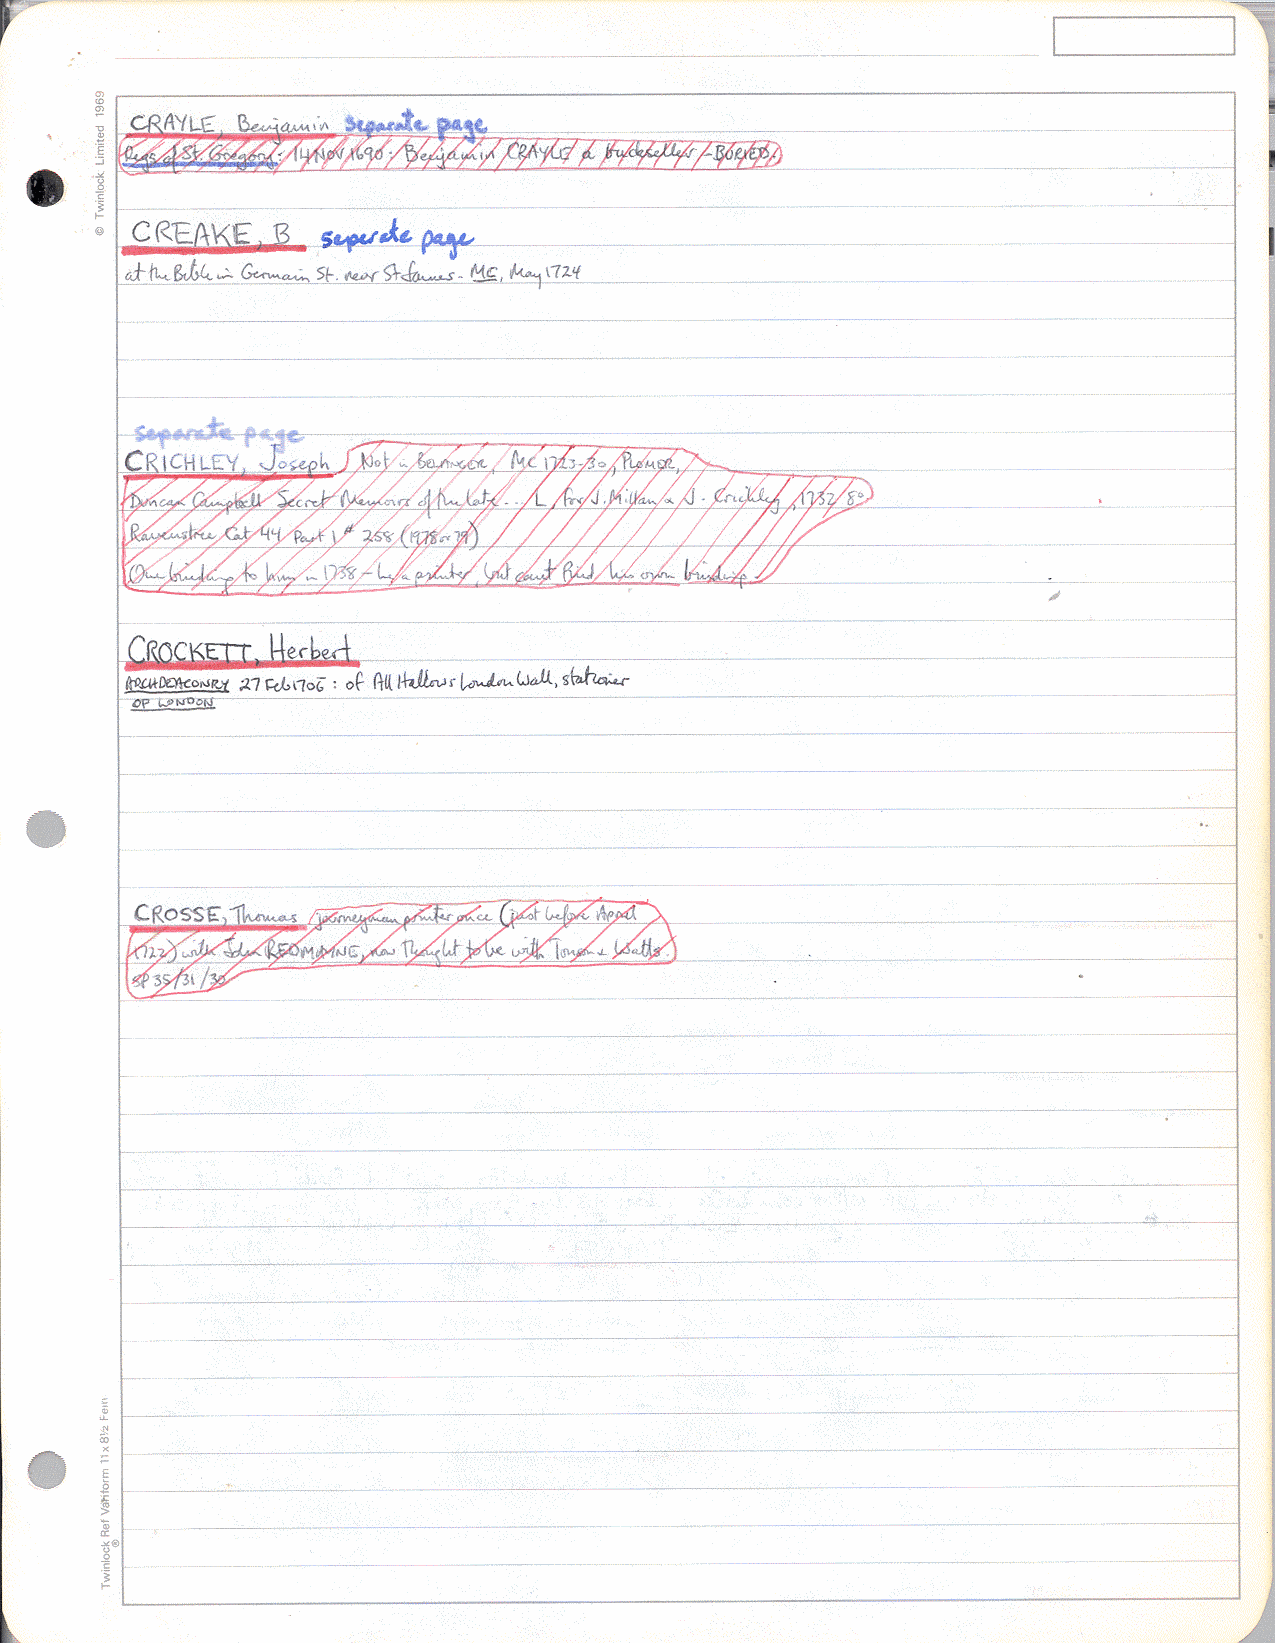 © Twinlock Limited 1969
CRAYLE, Benjamin separate page
Regs of St. Gregory: 14 Nov 1690: Benjamin CRAYLE a buckseller - BURIED.
CREAKE, B separate page
at the Bible in Germain St. near St James - MC, May 1724
separate page
CRICHLEY, Joseph Not in BERANGER, MC 1723-30, PLOMER,
Duncan Campbell Secret Memoirs of the late... L, for J. Millan & J. Crichley, 1732/80
Ravenstree Cat 44 Part 1 # 258 (1978 or 79)
One binding to him in 1738 - he a printer, but can't find his own binding.
CROCKETT, Herbert
ARCHDEACONRY 27 Feb 1705 : of All Hallows London Wall, stationer
OF LONDON
CROSSE, Thomas journeyman printer once (just before April
1722) with John REDMAYNE, now thought to be with Tonson & Watts.
SP 35/31/30
Twinlock Ref Variform 11 x 8½ Feint